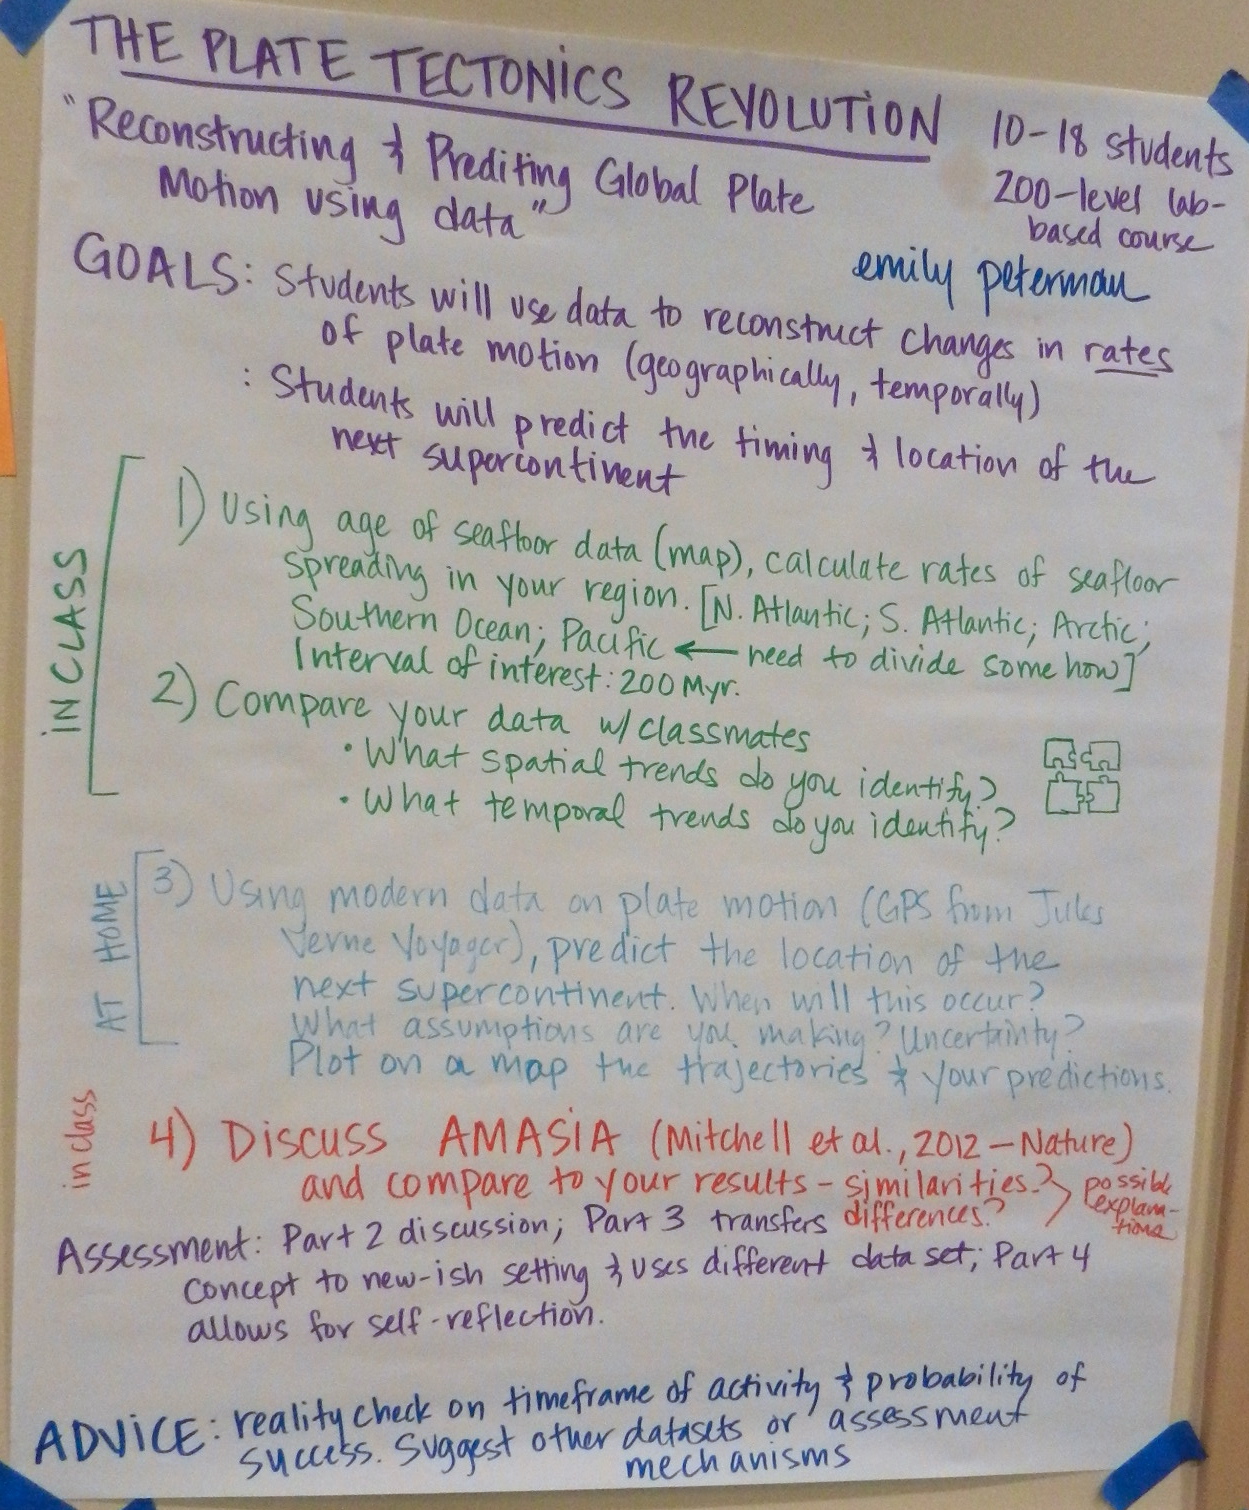 THE PLATE TECTONICS REVOLUTION
10-18 students
200-level lab-
based course
"Reconstructing & Prediting Global Plate
Motion using data"
emily peterman
GOALS: Students will use data to reconstruct changes in rates
of plate motion (geographically, temporally)
: Students will predict the timing & location of the
next supercontinent
IN CLASS
1) Using age of seafloor data (map), calculate rates of seafloor
spreading in your region. [N. Atlantic; S. Atlantic; Arctic;
Southern Ocean; Pacific ← need to divide some how]
Interval of interest: 200 Myr.
2) Compare your data w/ classmates
• What spatial trends do you identify?
• What temporal trends do you identify?
AT HOME
3) Using modern data on plate motion (GPS from Jules
Verne Voyager), predict the location of the
next supercontinent. When will this occur?
What assumptions are you making? Uncertainty?
Plot on a map the trajectories & your predictions.
in class
4) Discuss AMASIA (Mitchell et al., 2012 - Nature)
and compare to your results - similarities?
differences?
possible
explana-
tions
Assessment: Part 2 discussion; Part 3 transfers
concept to new-ish setting & uses different data set; Part 4
allows for self-reflection.
ADVICE: reality check on timeframe of activity & probability of
success. Suggest other datasets or assessment
mechanisms